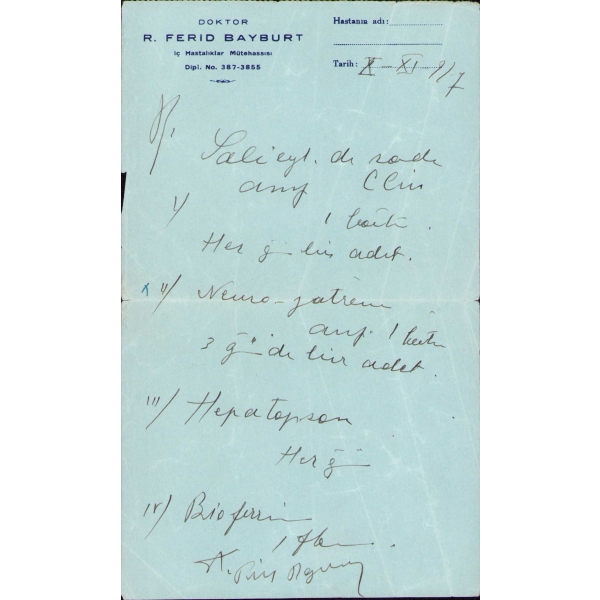 DOKTOR
R. FERID BAYBURT
İç Hastalıklar Mütehassısı
Dipl. No. 387-3855
Hastanın adı:
Tarih: X XI 9/7
Salicyl. de soude
amp Clin
I/ 1 boîte.
Her g bir adet.
II/ Neuro-yatrème
amp. 1 boîte
3 günde bir adet.
III/ Hepatopson
Her g
IV/ Bioferrin
1 fl